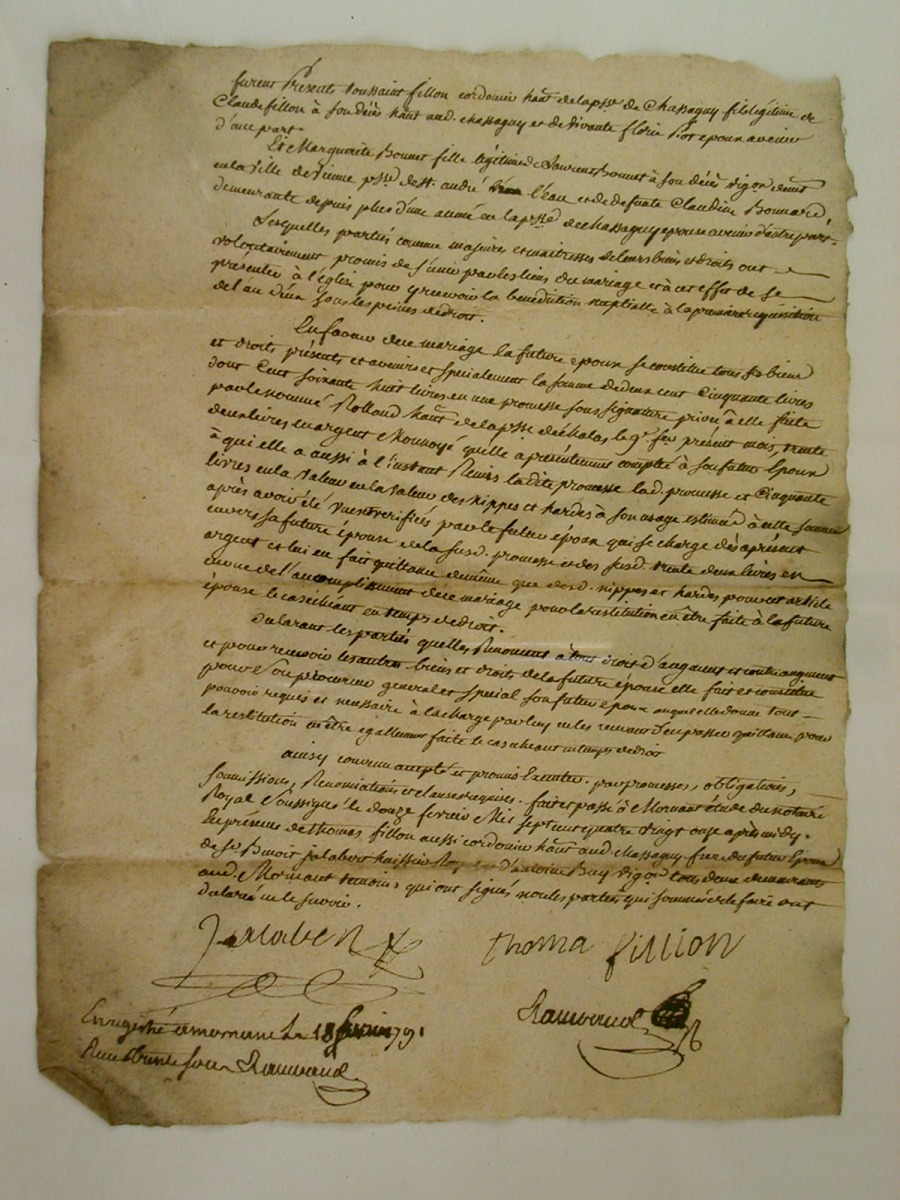 furent Présents toussaint fillon cordonnier hãnt de la psse de Chassagny fils légitime de
Claude fillon à son décès hãnt aud. chassagny et de vivante florie Pot epoux avenir
d'une part
Et Marguerite Bonnet fille légitime de Laurent Bonnet à son décès vigon demt
en la ville de vienne psse de st. andré l'eau et de defunte Claudine Bonnard,
demeurante depuis plus d'une année en la psse de chassagny epouse avenir d'autre part.
Lesquelles parties comme majeures et maitresses de leurs biens et droits ont
volontairement promis de s'unir par les liens du mariage et à cet effet de se
présenter à l'église pour y recevoir la bénédiction nuptialle à la premiere requisition
de l'un d'eux sous les peines de droit.
En faveur de ce mariage la future epouse se constitue tous ses biens
et droits présents et avenirs et spécialement la somme de deux cent cinquante livres
dont Cent soixante huit livres en une promesse sous signature privée à elle faite
par le nommé Rolland hãnt de la psse d'échalas le 9e. du présent mois, trente
deux livres en argent Monnoyé qu'elle a présentement compté à son futur Epoux
à qui elle a aussi à l'instant Remis ladite promesse lad. promesse et Cinquante
livres en la valeur en la valeur des nippes et hardes à son usage estimées à cette somme
après avoir été vues et verifiées par le futur époux qui se charge dès aprésent
envers sa future épouse de la susd. promesse et des susd. trente deux livres en
argent et lui en fait quittance de même que desd. nippes et hardes pour cet article
en cas de l'accomplissement de ce mariage pour la restitution en être faite à la future
épouse le cas échéant en temps de droit.
Déclarant les parties qu'elles Renoncent à tous droits d'augment et contre augment
et pour recevoir les autres biens et droits de la future épouse elle fait et constitue
pour son procureur general et spécial son futur epoux auquel elle donne tout
pouvoir requis et necessaire à la charge par luy en les recevant d'en passer quittance pour
la restitution en être egallement faite le cas echeant en temps de droit
ainsy convenu accepté et promis Executer. par promesses, obligations,
soumissions, Renonciations et clauses requises. fait et passé à Mornant étude du notaire
Royal Soussigné le douze fevrier Mil sept cent quatre vingt onze après midy.
En présence de thomas fillon aussi cordonnier hãnt aud. Chassagny frere du futur Epoux
de sr. Benoit jalabert huissier Royal d'antoine Bay vigon tous deux demeurants
aud. Mornant temoins qui ont signés non les parties qui sommées de le faire ont
déclaré ne le sçavoir.
Jalabert
Thoma fillion
Enregistré a mornant le 18 fevrier 1791